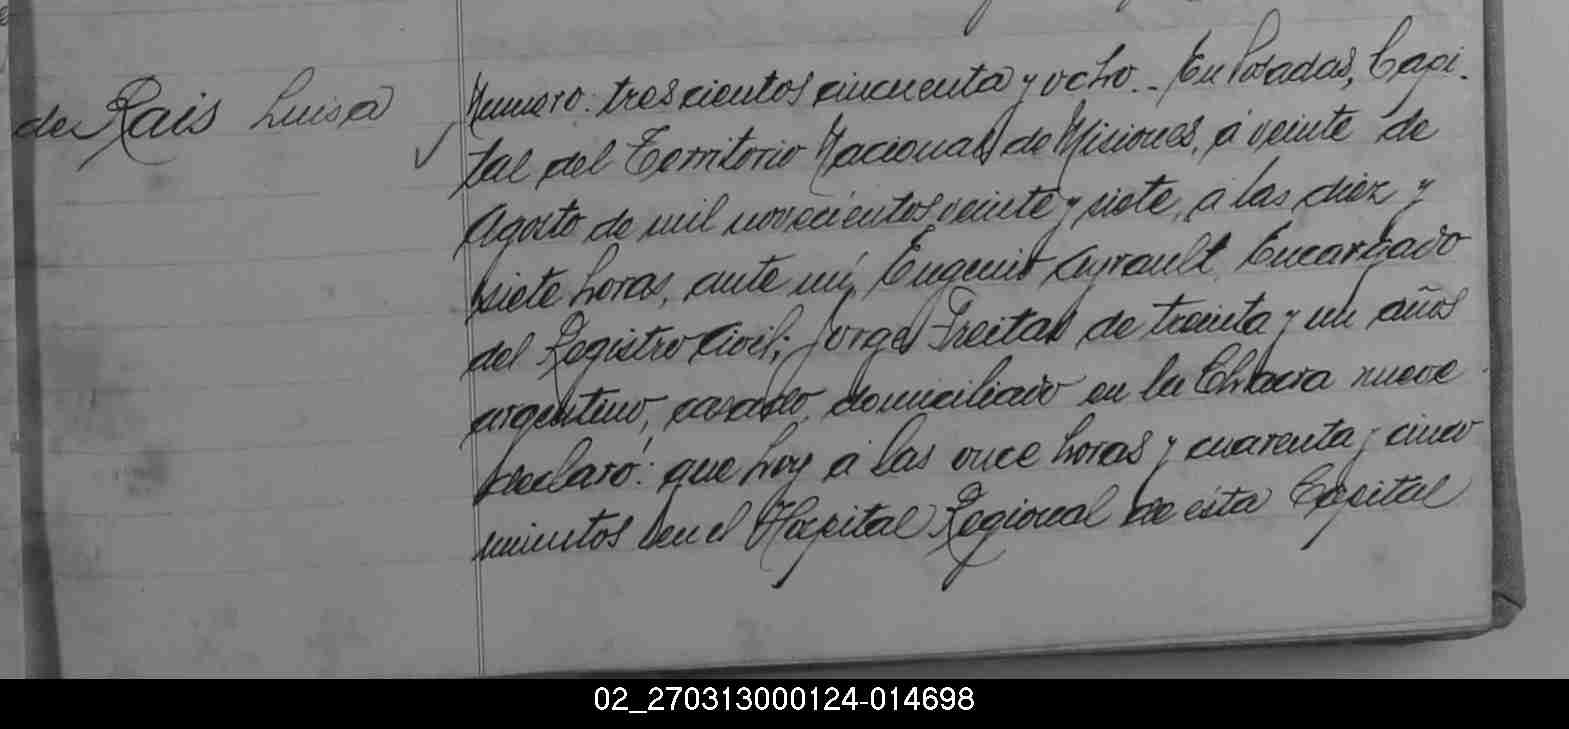 de Rais Luisa
Numero: trescientos cincuenta y ocho.- En Posadas, Capi-
tal del Territorio Nacional de Misiones, á veinte de
Agosto de mil novecientos veinte y siete, á las diez y
siete horas, ante mí, Eugenio Ayrault Encargado
del Registro Civil; Jorge Freitas de treinta y un años
argentino, casado, domiciliado en la Chacra nueve
declaró: que hoy á las once horas y cuarenta y cinco
minutos en el Hospital Regional de esta Capital
02_270313000124-014698